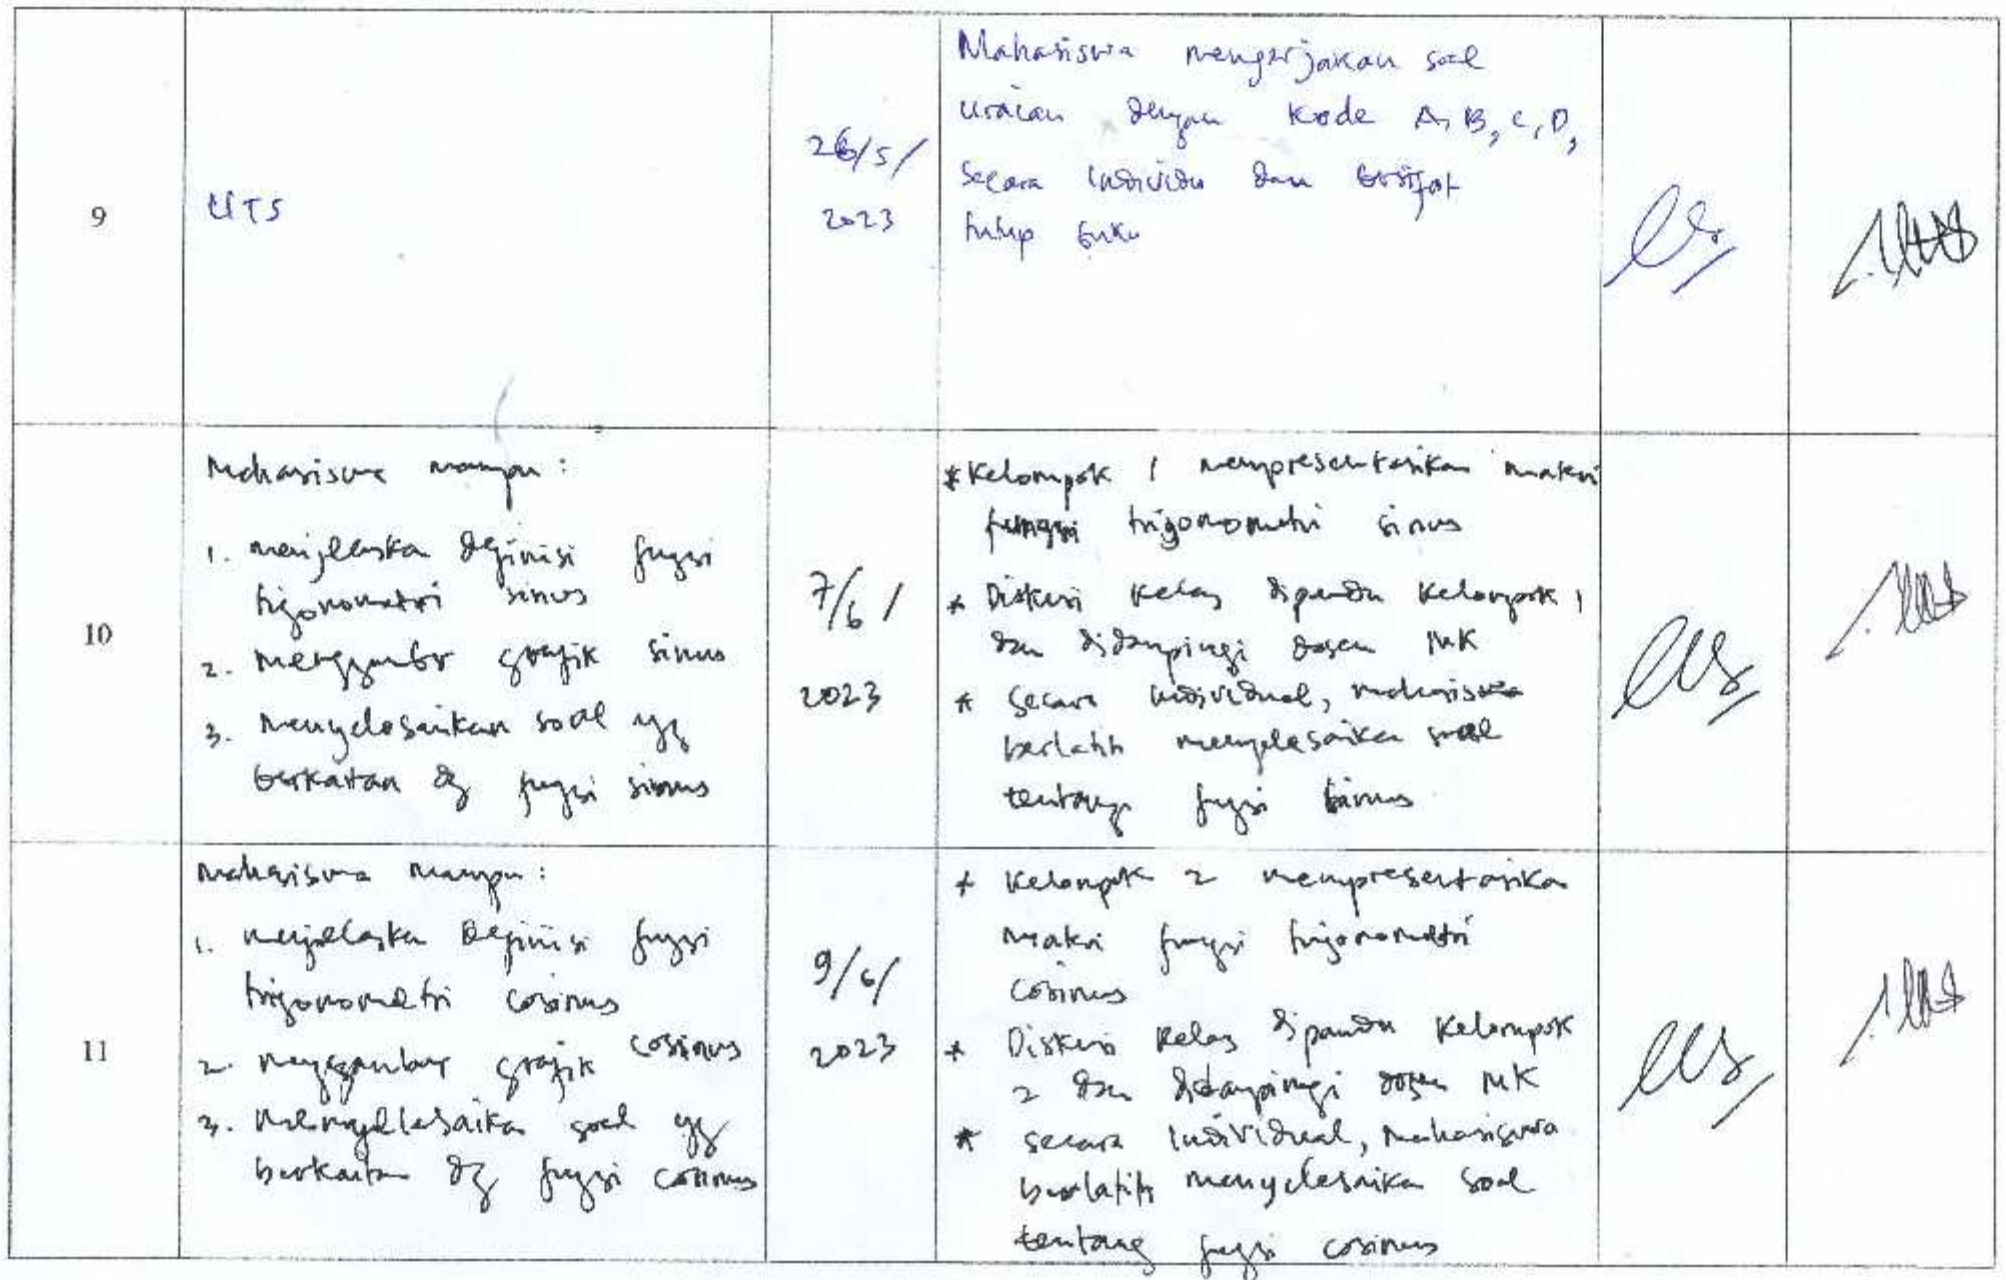 9
UTS
26/5/
2023
Mahasiswa mengerjakan soal
uraian dengan kode A, B, C, D,
secara individu dan bersifat
tutup buku
10
Mahasiswa mampu :
1. menjelaska definisi fugsi
trigonometri sinus
2. menggambr grafik sinus
3. menyelesaikan soal yg
berkaitan dg fugsi sinus
7/6/
2023
* Kelompok 1 mempresentasikan materi
fungsi trigonometri sinus
* Diskusi kelas dipandu kelompok 1
dan didampingi dosen MK
* secara individual, mahasiswa
berlatih menyelesaika soal
tentang fugsi sinus
11
Mahasiswa mampu :
1. menjelaska definisi fugsi
trigonometri cosinus
2. menggambar grafik cosinus
3. menyelesaika soal yg
berkaitan dg fugsi cosinus
9/6/
2023
* Kelompok 2 mempresentasika
materi fungsi trigonometri
cosinus
* Diskusi kelas dipandu kelompok
2 dan didampingi dosen MK
* secara individual, mahasiswa
berlatih menyelesaika soal
tentang fugsi cosinus